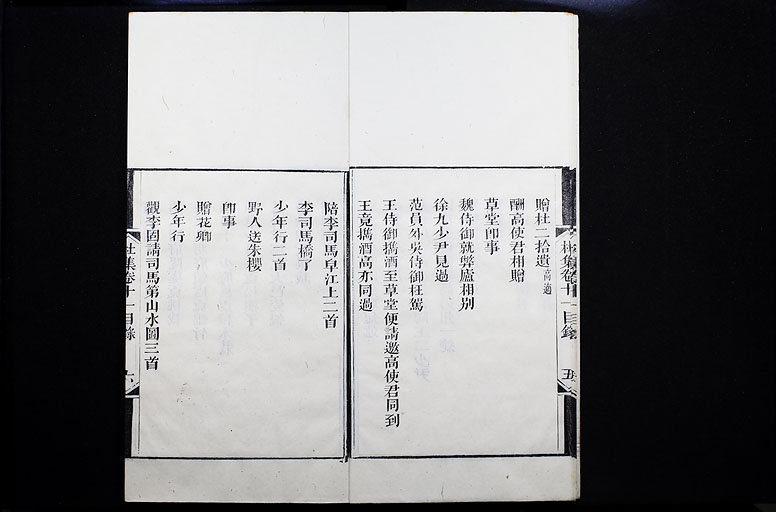 杜集卷十一目錄
五
贈杜二拾遺 高適
酬高使君相贈
草堂即事
魏侍御就弊廬相別
徐九少尹見過
范員外吳侍御枉駕
王侍御攜酒至草堂便請邀高使君同到
王竟攜酒高亦同過
陪李司馬皁江上二首
李司馬橋了
少年行二首
野人送朱櫻
即事
贈花卿
少年行
觀李固請司馬第山水圖三首
杜集卷十一目錄
六